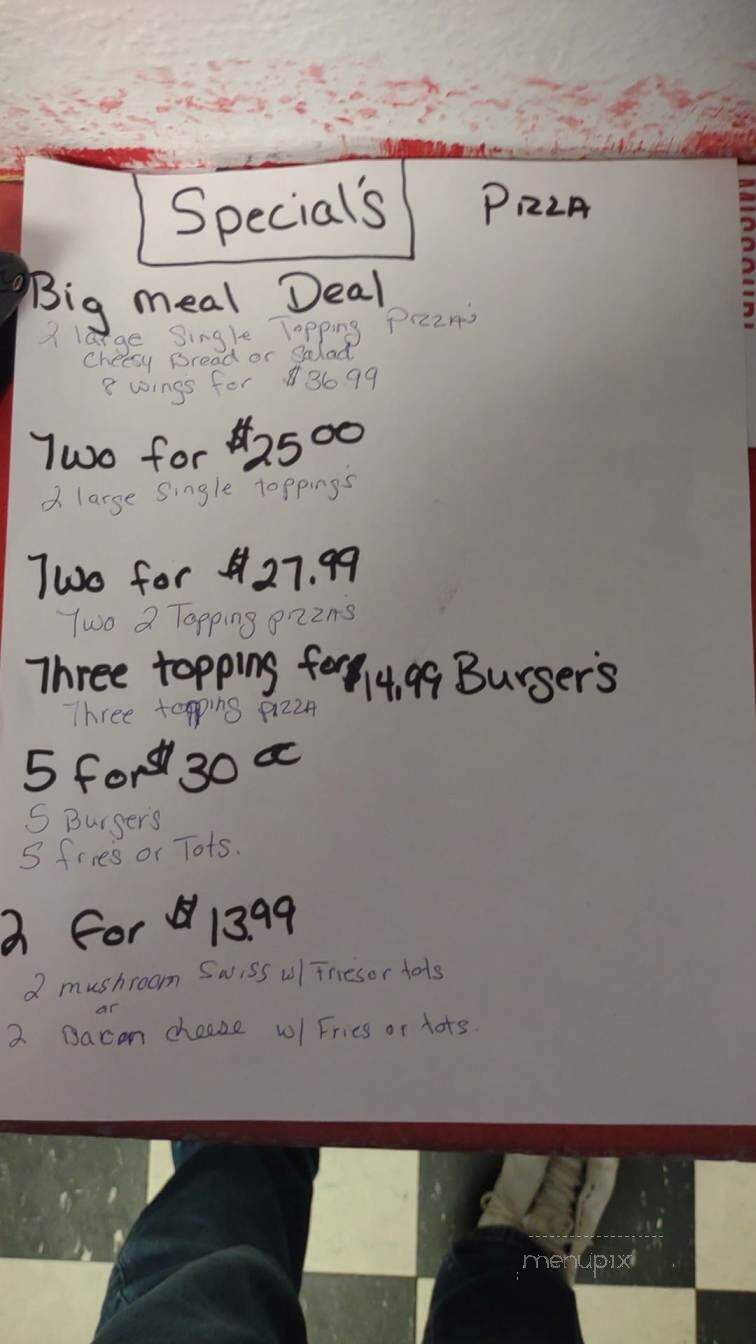 Special's PIZZA
MISSOURI
Big meal Deal
2 large Single Topping PIZZA's
Cheesy Bread or Salad
8 wings for $36.99
Two for $25 00
2 large Single topping's
Two for $27.99
Two 2 Topping PIZZA's
Three topping for $14.99 Burger's
Three topping PIZZA
5 for $30 00
5 Burger's
5 fries or Tots.
2 for $13.99
2 mushroom Swiss w/ Fries or tots
or
2 Bacon cheese w/ Fries or tots.
menupix